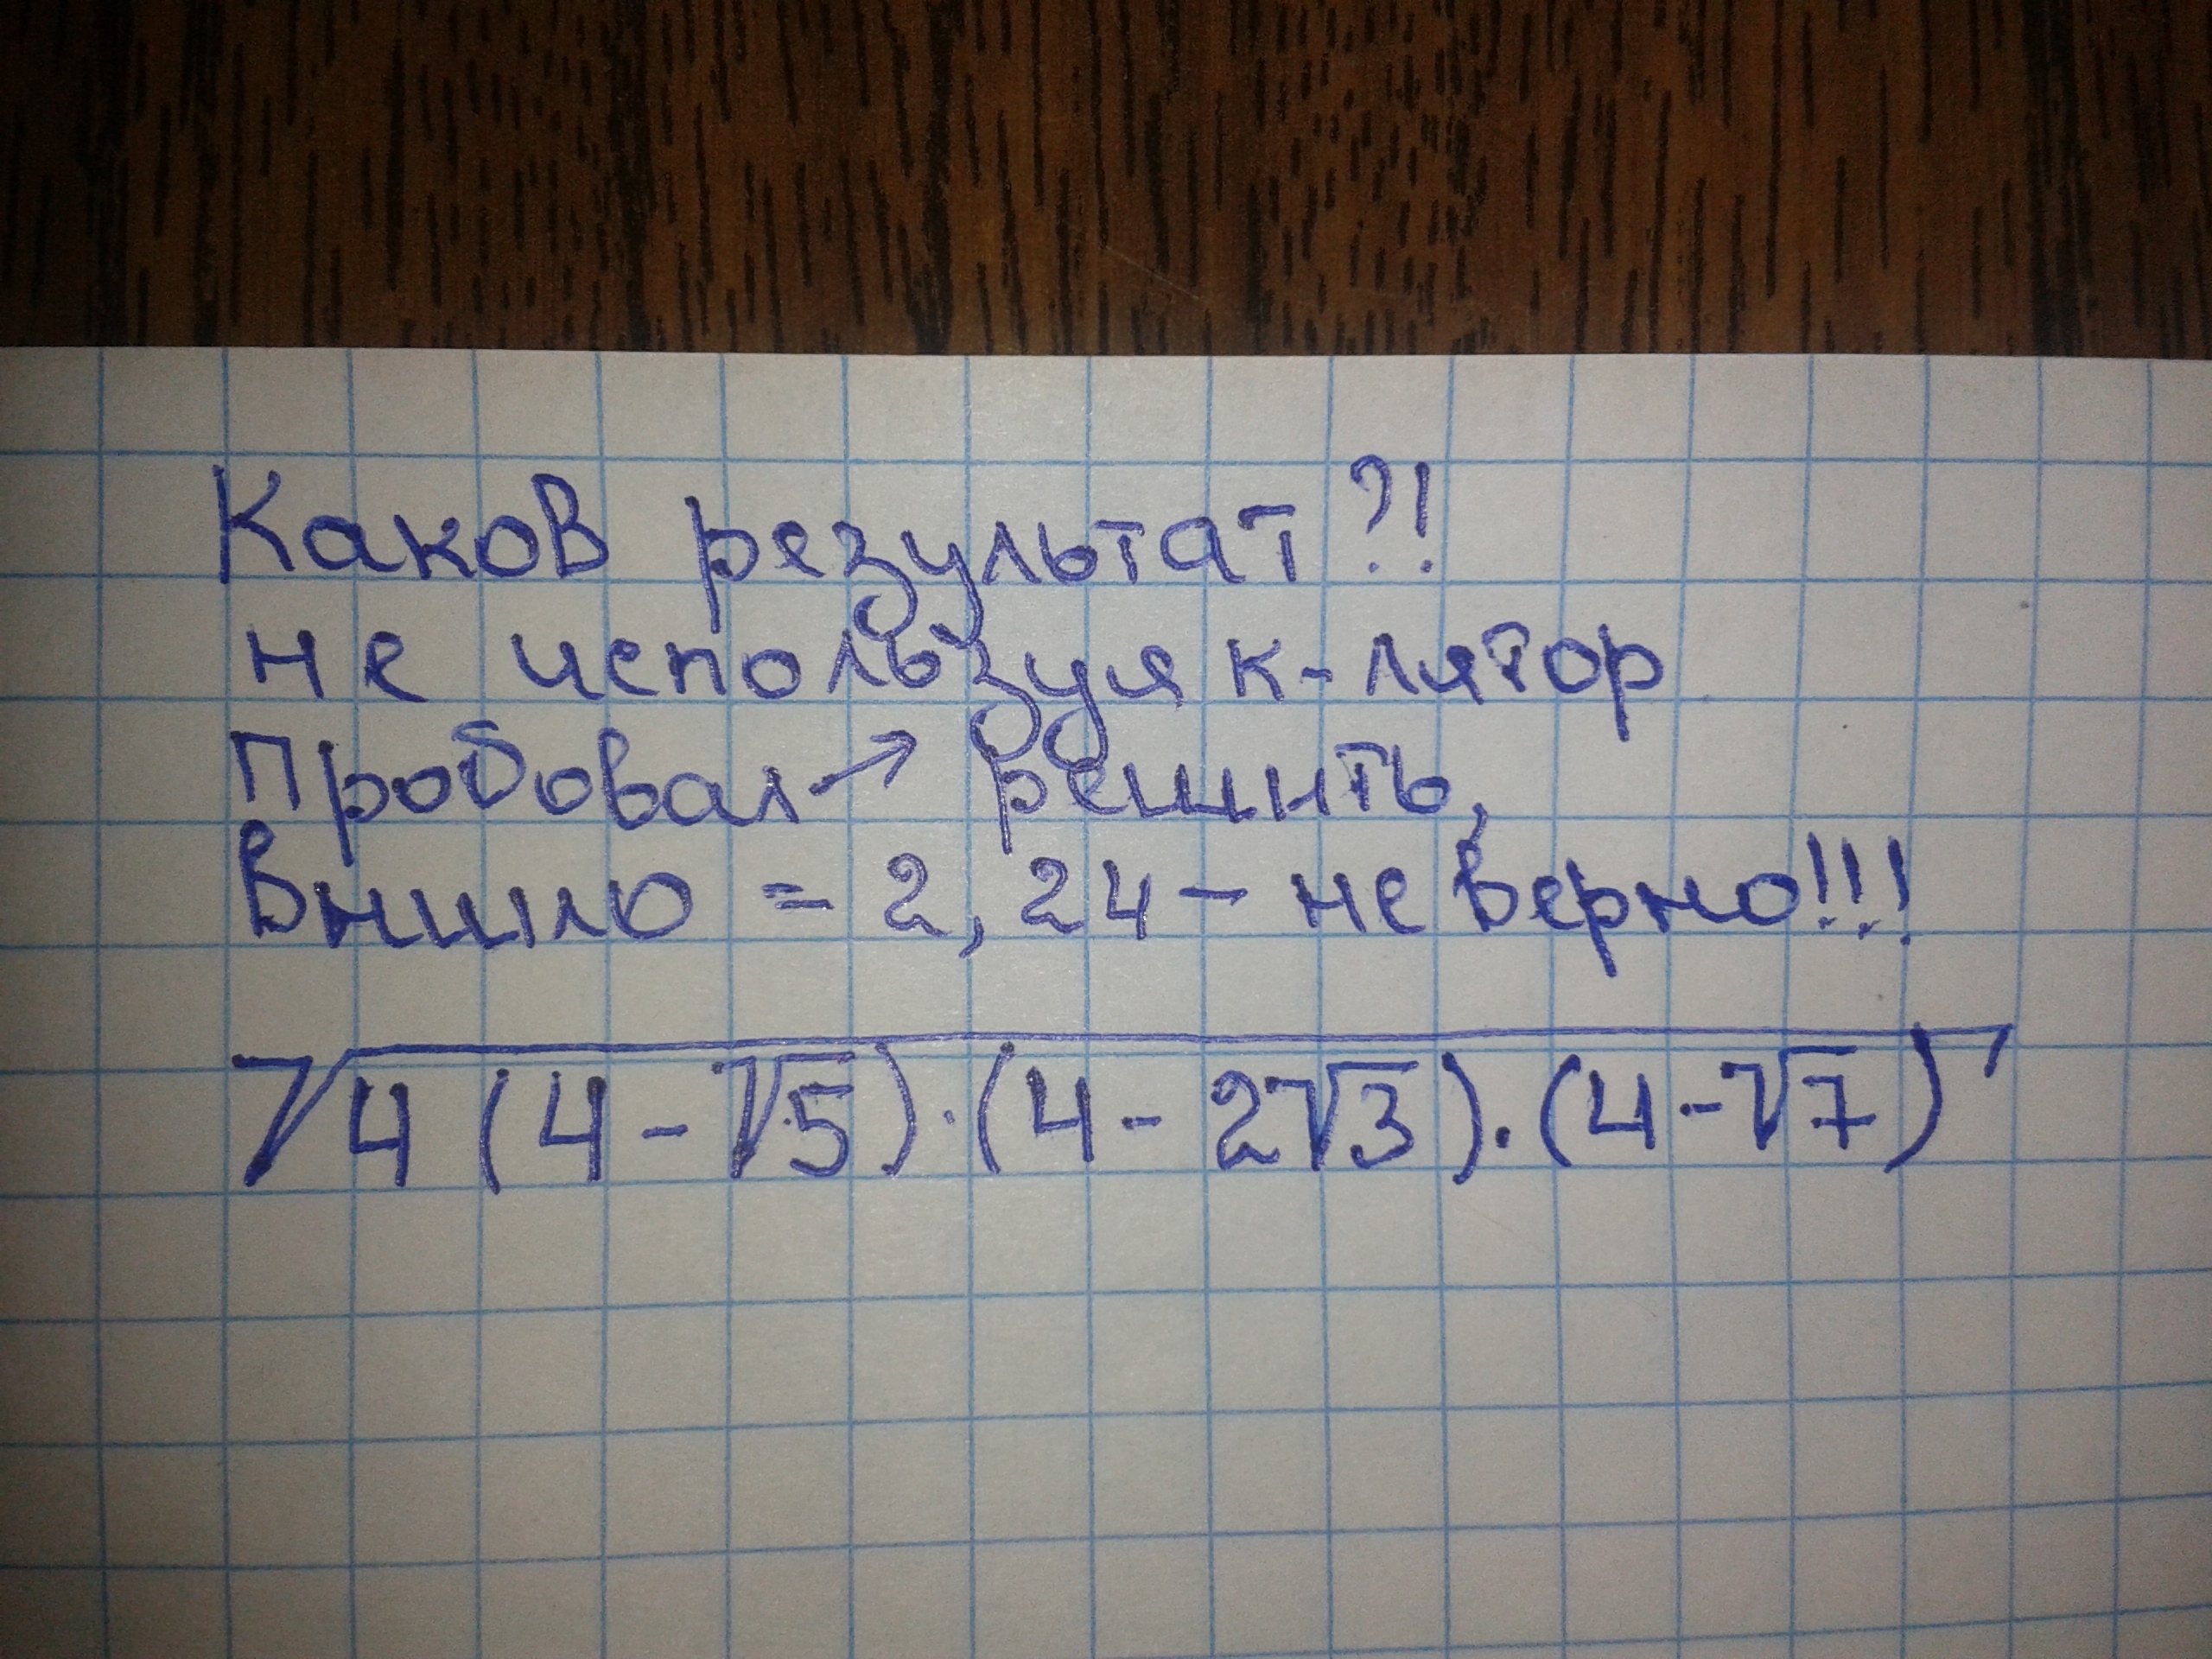 Каков результат?!
не используя к-лятор
Пробовал → решить,
Вышло = 2,24 - не верно!!!
√4(4-√5)·(4-2√3)·(4-√7)